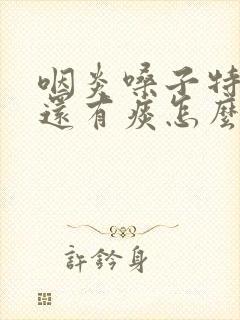 咽炎嗓子特
還有痰怎麼
許鈐身